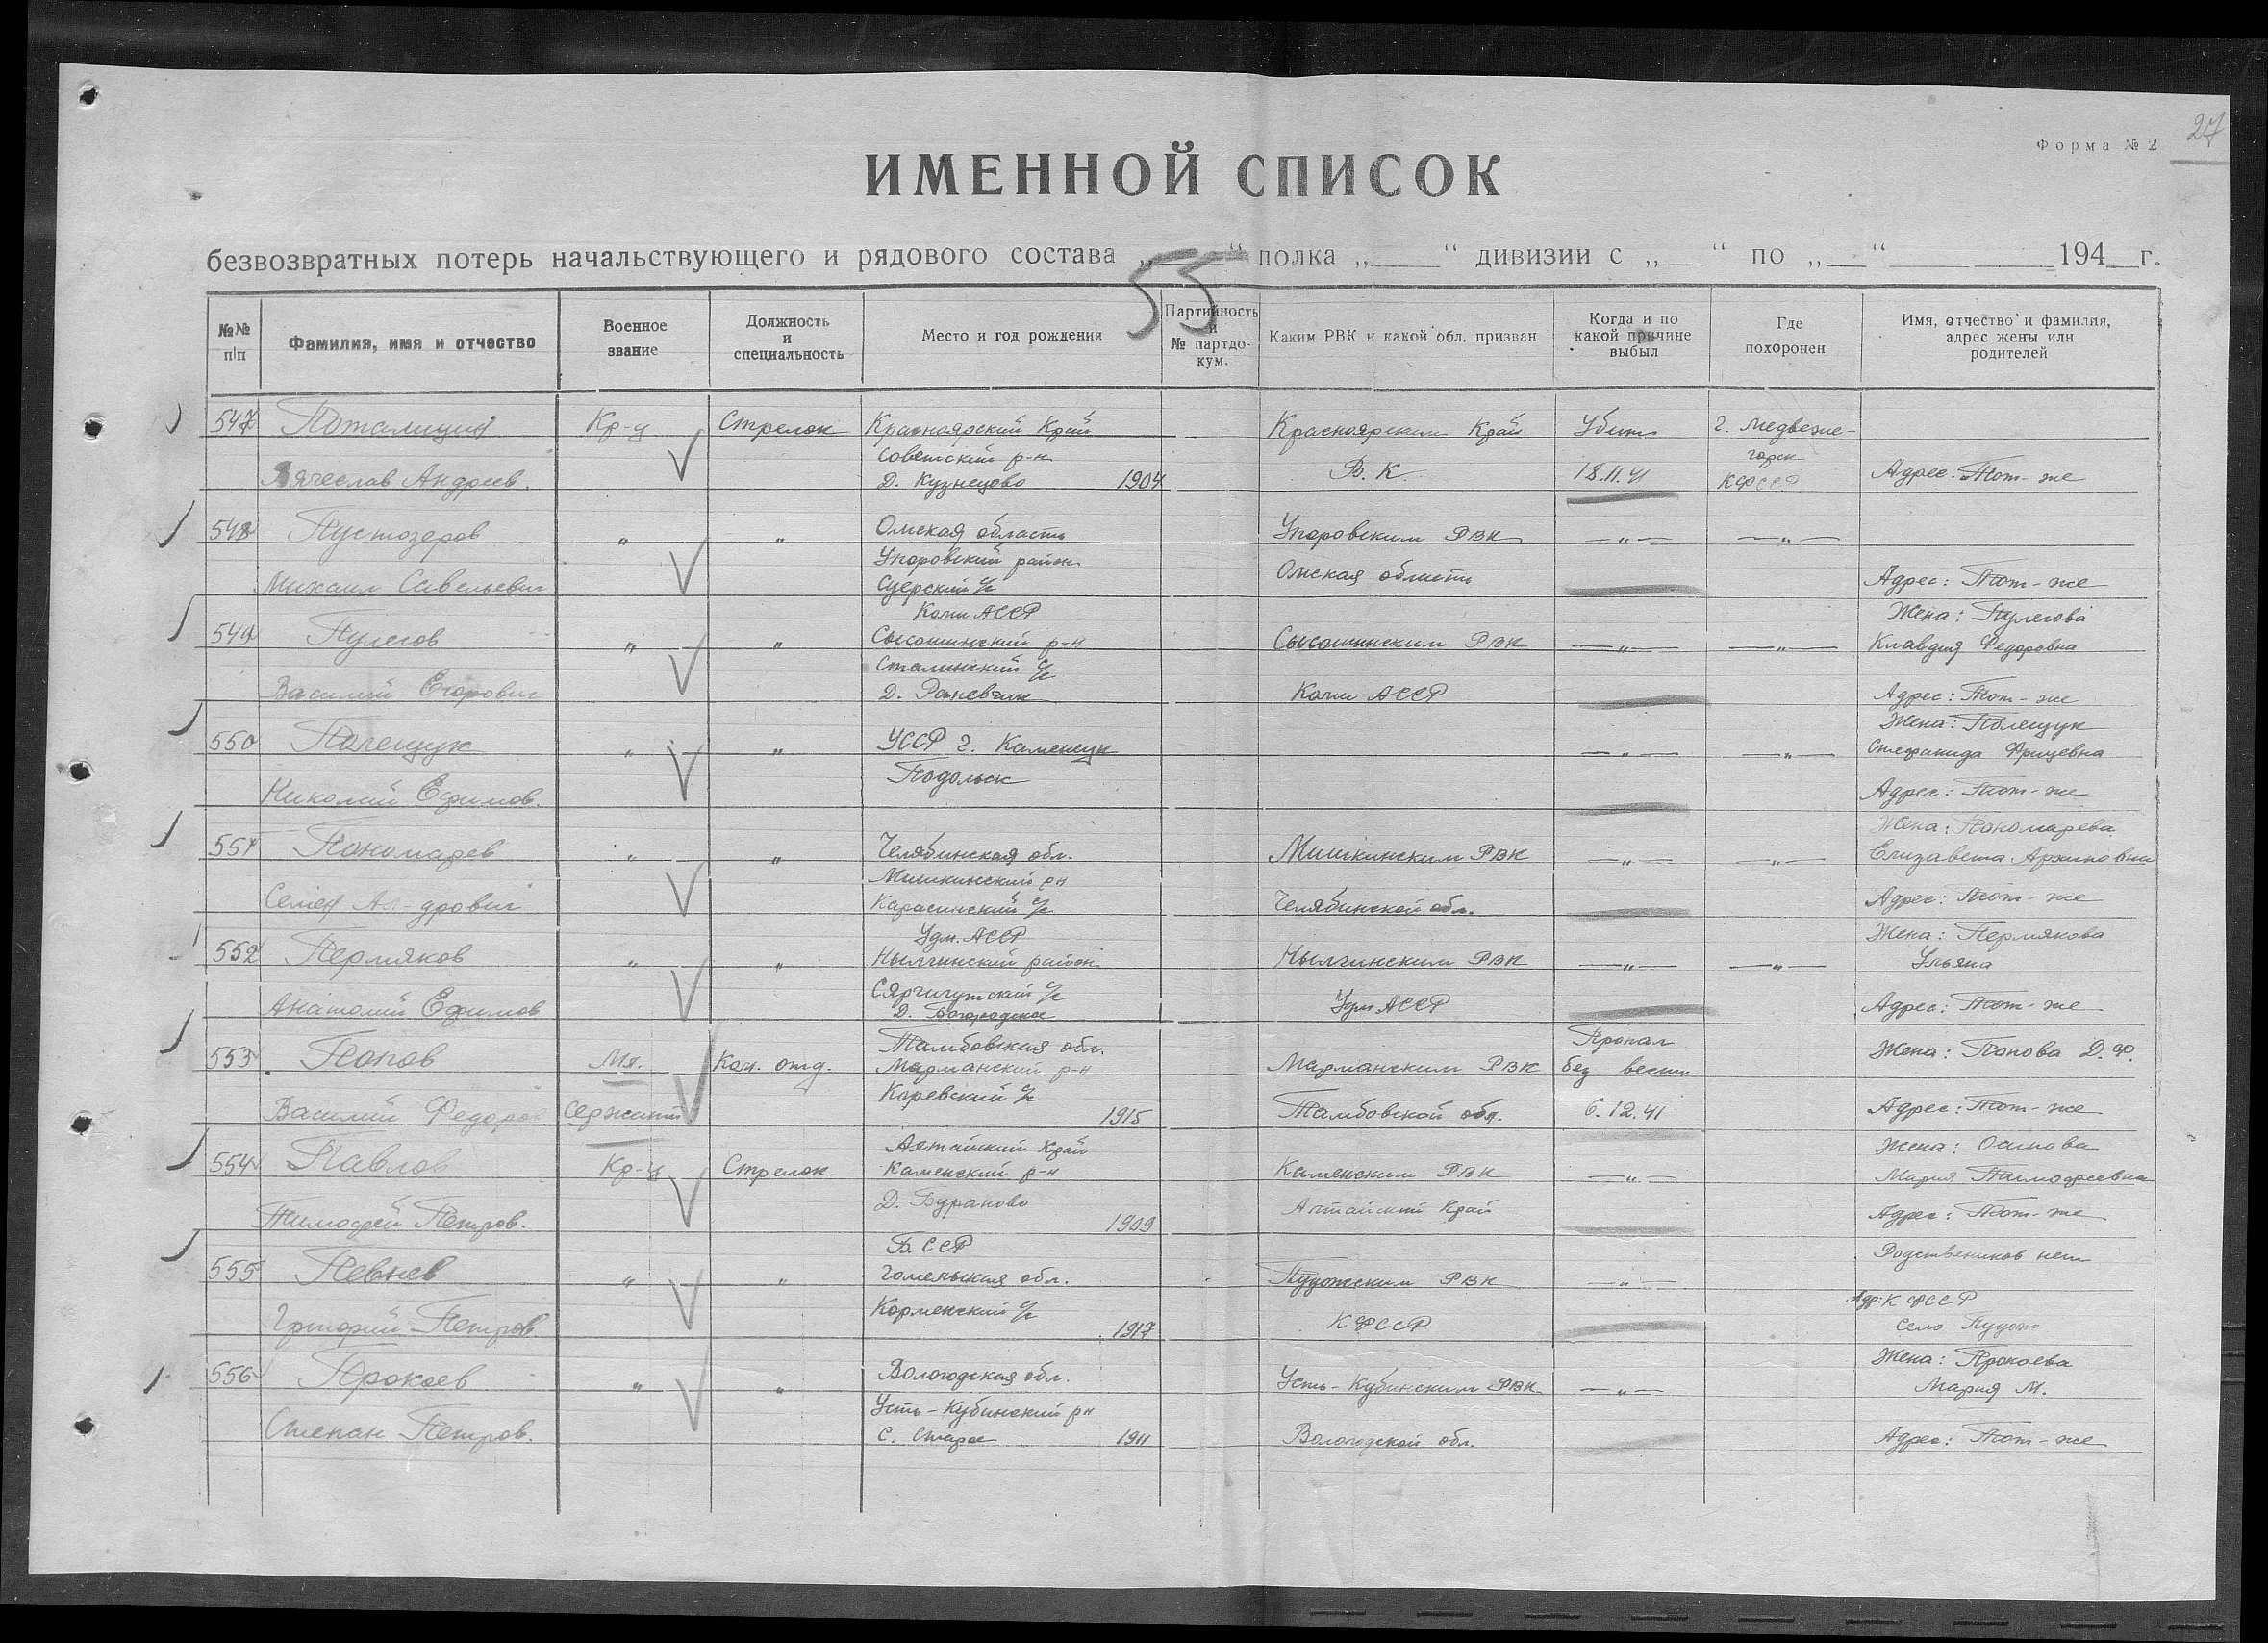 27
Форма № 2
ИМЕННОЙ СПИСОК
безвозвратных потерь начальствующего и рядового состава „ “ полка „ “ дивизии с „ “ по „ “ 194 г.
55
№№ п/п
Фамилия, имя и отчество
Военное звание
Должность и специальность
Место и год рождения
Партийность и № партдокум.
Каким РВК и какой обл. призван
Когда и по какой причине выбыл
Где похоронен
Имя, отчество и фамилия, адрес жены или родителей
547 Поталицин Кр-ц Стрелок Красноярский Край Красноярским Край Убит г. Медвеже-
Советский р-н горск
Вячеслав Андреев. Д. Кузнецово 1904 В. К. 18.11.41 КФССР Адрес: Тот-же
548 Пустозеров „ „ Омская область Упоровским РВК —„— —„—
Упоровский район
Михаил Савельевич Суерский с/с Омская область Адрес: Тот-же
Коми АССР Жена: Пулегова
549 Пулегов „ „ Сысольский р-н РВК —„— —„— Клавдия Федоровна
с/с
Василий Егорович Д. Коми АССР Адрес: Тот-же
Жена: Полещук
550 Полещук „ „ УССР г. Каменецк —„— —„— Стефанида
Подольск
Николай Ефимов. Адрес: Тот-же
Жена: Пономарева
551 Пономарев „ „ Челябинская обл. Мишкинским РВК —„— —„— Елизавета Архиповна
Мишкинский рн
Семен Ал-дрович Карасинский с/с Челябинской обл. Адрес: Тот-же
Удм. АССР Жена: Пермякова
552 Пермяков „ „ Нылгинский район Нылгинским РВК —„— —„— Ульяна
с/с
Анатолий Ефимов Д. Богородское Удм АССР Адрес: Тот-же
Тамбовская обл. Пропал
553 Попов Мл. Ком. отд. Марманский р-н Марманским РВК без вести Жена: Попова Д. Ф.
Каревский с/с
Василий Федоров сержант 1915 Тамбовской обл. 6.12.41 Адрес: Тот-же
Алтайский Край Жена: Осипова
554 Павлов Кр-ц Стрелок Каменский р-н Каменским РВК —„— Мария Тимофеевна
Д. Бураново Алтайский Край
Тимофей Петров. 1909 Адрес: Тот-же
Б.ССР Родственников нет
555 Певнев „ „ Гомельская обл. Пудожским РВК —„—
Корменский с/с Адр: КФССР
Григорий Петров 1917 КФССР село Пудож
Жена: Прокоева
556 Прокоев „ „ Вологодская обл. Усть-Кубинским РВК —„— Мария М.
Усть-Кубинский рн
Степан Петров. С. Старое 1911 Вологодской обл. Адрес: Тот-же